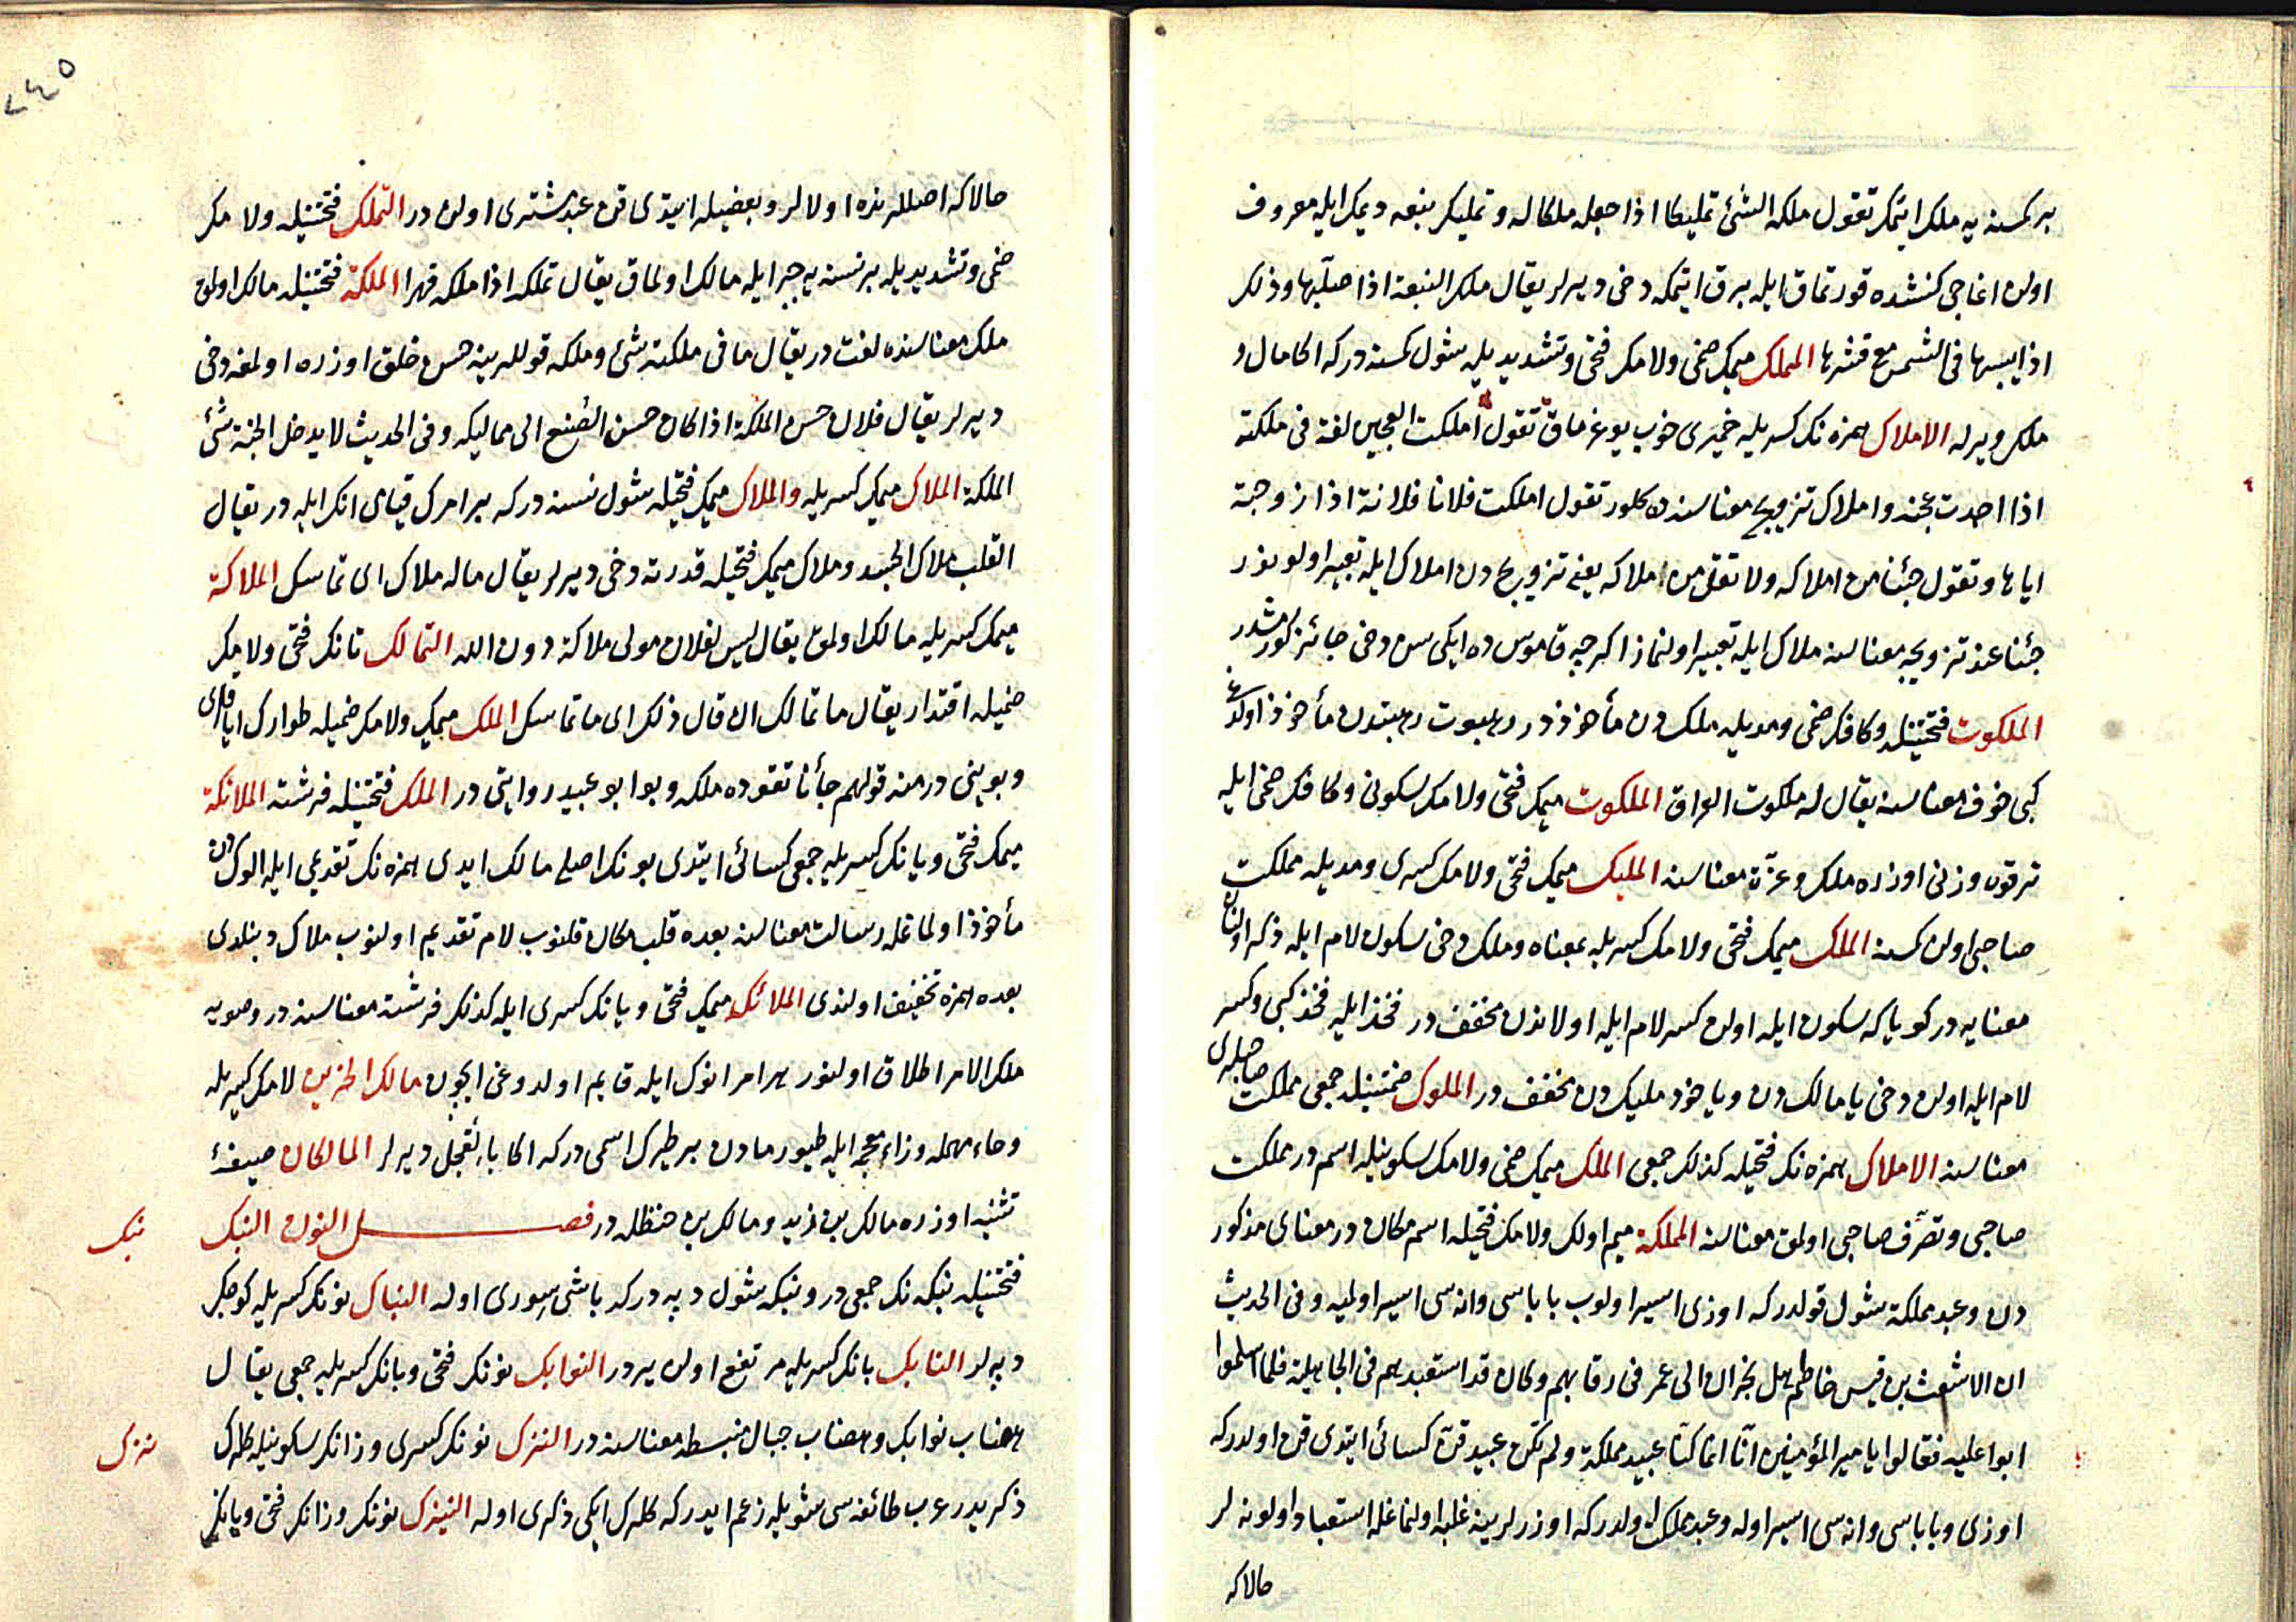 بر كمسنه يه ملك ايتمك تقول ملكه الشئ تمليكا اذا جعله ملكا له وتمليك نبعه ديمك ايله معروف
اولن اغاجى كنشده قورتماق ايله برق ايتمكه دخى ديرلر يقال ملك النبعة اذا صلبها وذلك
اذا يبسها فى الشمس مع قشرها المملك ميمك ضمى ولامك فتحى وتشديديله شول كمسنه دركه اكا مال و
ملك ويرله الاملاك همزه نك كسريله خميرى خوب يوغرماق تقول املكت العجين لغة فى ملكته
اذا اجدت عجنه واملاك تزويج معناسنه ده كلور تقول املكت فلانا فلانة اذا زوجته
اياها وتقول جئنا من املاكه ولا تقل من ملاكه يعنى تزويج دن املاك ايله تعبير اولونور
جئنا عند تزويجه معناسنه ملاك ايله تعبير اولنماز اكرچه قاموس ده ايكى سن دخى جائز كورمشدر
الملكوت فتحتينله وكافك ضمى ومديله ملك دن مأخوذدر رهبوت رهبتدن مأخوذ اولدوغى
كبى خوف معناسنه يقال له ملكوت العراق الملكوت ميمك فتحى ولامك سكونى وكافك ضمى ايله
ترقوه وزنى اوزره ملك وعزّة معناسنه المليك ميمك فتحى ولامك كسرى ومديله مملكت
صاحبى اولن كمسنه الملك ميمك فتحى ولامك كسريله بمعناه وملك دخى سكون لام ايله ذكر اولنان
معنايه در كويا كه سكون ايله اولن كسر لام ايله اولاندن مخفف در فخذ ايله فخذ كبى وكسر
لام ايله اولن دخى يا مالك دن ويا خود مليك دن مخفف در الملوك ضمتينله جمعى مملكت صاحبلرى
معناسنه الاملاك همزه نك فتحيله كذلك جمعى الملك ميمك ضمى ولامك سكونيله اسم در مملكت
صاحبى وتصرّف صاحبى اولمق معناسنه المملكة ميم اولك ولامك فتحيله اسم مكان در معناى مذكور
دن وعبد مملكة شول قولدركه اوزى اسير اولوب باباسى وانه سى اسير اولميه وفى الحديث
ان الاشعث بن قيس خاطم اهل نجران الى عمر فى رقابهم وكان قد استعبدهم فى الجاهلية فلما اسلموا
ابوا عليه فقالوا يا امير المؤمنين انّا انما كنّا عبيد مملكة ولم نكن عبيد قنّ كسائى ايتدى قن اولدركه
اوزى وباباسى وانه سى اسير اوله وعبد مملك اولدركه اوزرلرينه غلبه اولنماغله استعباد اولونه لر
حالاكه
٢٤٥
حالاكه اصللرنده اولالر وبعضيله ايتدى قن عبد مشترى اولن در التملك فتحتينله ولامك
ضمى وتشديديله بر نسنه يه جبر ايله مالك اولماق يقال تملكه اذا ملكه قهرا الملكة فتحتينله مالك اولمق
ملك معناسنده لغت در يقال ما فى ملكته شئ وملكه قوللرينه حسن خلق اوزره اولمغه دخى
ديرلر يقال فلان حسن الملكة اذا كان حسن الصّنع الى مماليكه وفى الحديث لا يدخل الجنة سئ
الملكة الملاك ميمك كسريله والملاك ميمك فتحيله شول نسنه دركه بر امرك قيامى انك ايله در يقال
القلب ملاك الجسد وملاك ميمك فتحيله قدرته دخى ديرلر يقال ماله ملاك اى تماسك الملاكة
ميمك كسريله مالك اولمق يقال ليس لفلان مولى ملاكة دون الله التمالك تانك فتحى ولامك
ضميله اقتدار يقال ما تمالك ان قال ذلك اى ما تماسك الملك ميمك ولامك ضميله طوارك اياقلرى
وبوينى در منه قولهم جأنا تقوده ملكه وبو ابو عبيد روايتى در الملك فتحتينله فرشته الملائكة
ميمك فتحى ويانك كسريله جمعى كسائى ايتدى بونك اصلى مالك ايدى همزه نك تقديمى ايله الوك دن
مأخوذ اولماغله رسالت معناسنه بعده قلب مكان قلنوب لام تقديم اولنوب ملاك دينلدى
بعده همزه تخفيف اولندى الملائك ميمك فتحى ويانك كسرى ايله كذلك فرشته معناسنه در وصويه
ملك الامر اطلاق اولنور هر امر انوك ايله قايم اولدوغى ايچون مالك الحزين لامك كسريله
وحاء مهمله وزاء معجمه ايله طيور مادن بر طيرك اسمى دركه اكا بالقجل ديرلر المالكان صيغۀ
تثنيه اوزره مالك بن زيد ومالك بن حنظله در فصل النون النبك
نبك
فتحتينله نبكه نك جمعى در ونبكه شول دپه دركه باشى سورى اوله النباك نونك كسريله كوچك
دپه لر النابك بانك كسريله مرتفع اولن يردر النوابك نونك فتحى وبانك كسريله جمعى يقال
هضاب نوابك وهضاب جبال منبسطه معناسنه در النزك نونك كسرى وزانك سكونيله كلرك
نزك
ذكريدر عرب طائفه سى شويله زعم ايدركه كلرك ايكى ذكرى اوله النيزك نونك وزانك فتحى ويانك